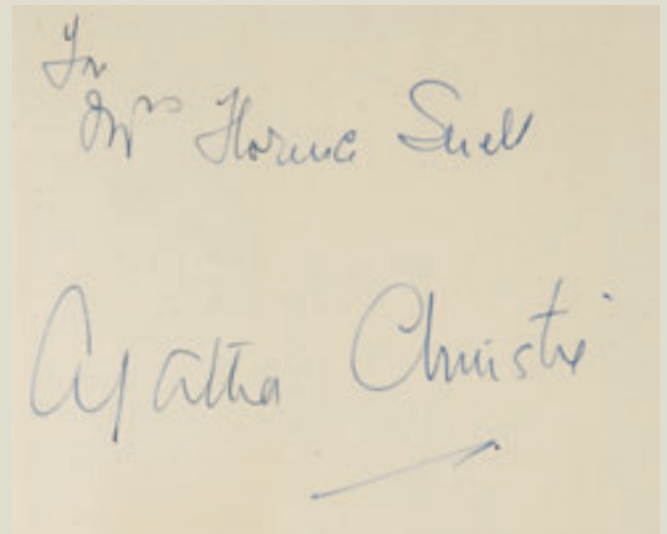 For
Mrs Florence Snell
Agatha Christie